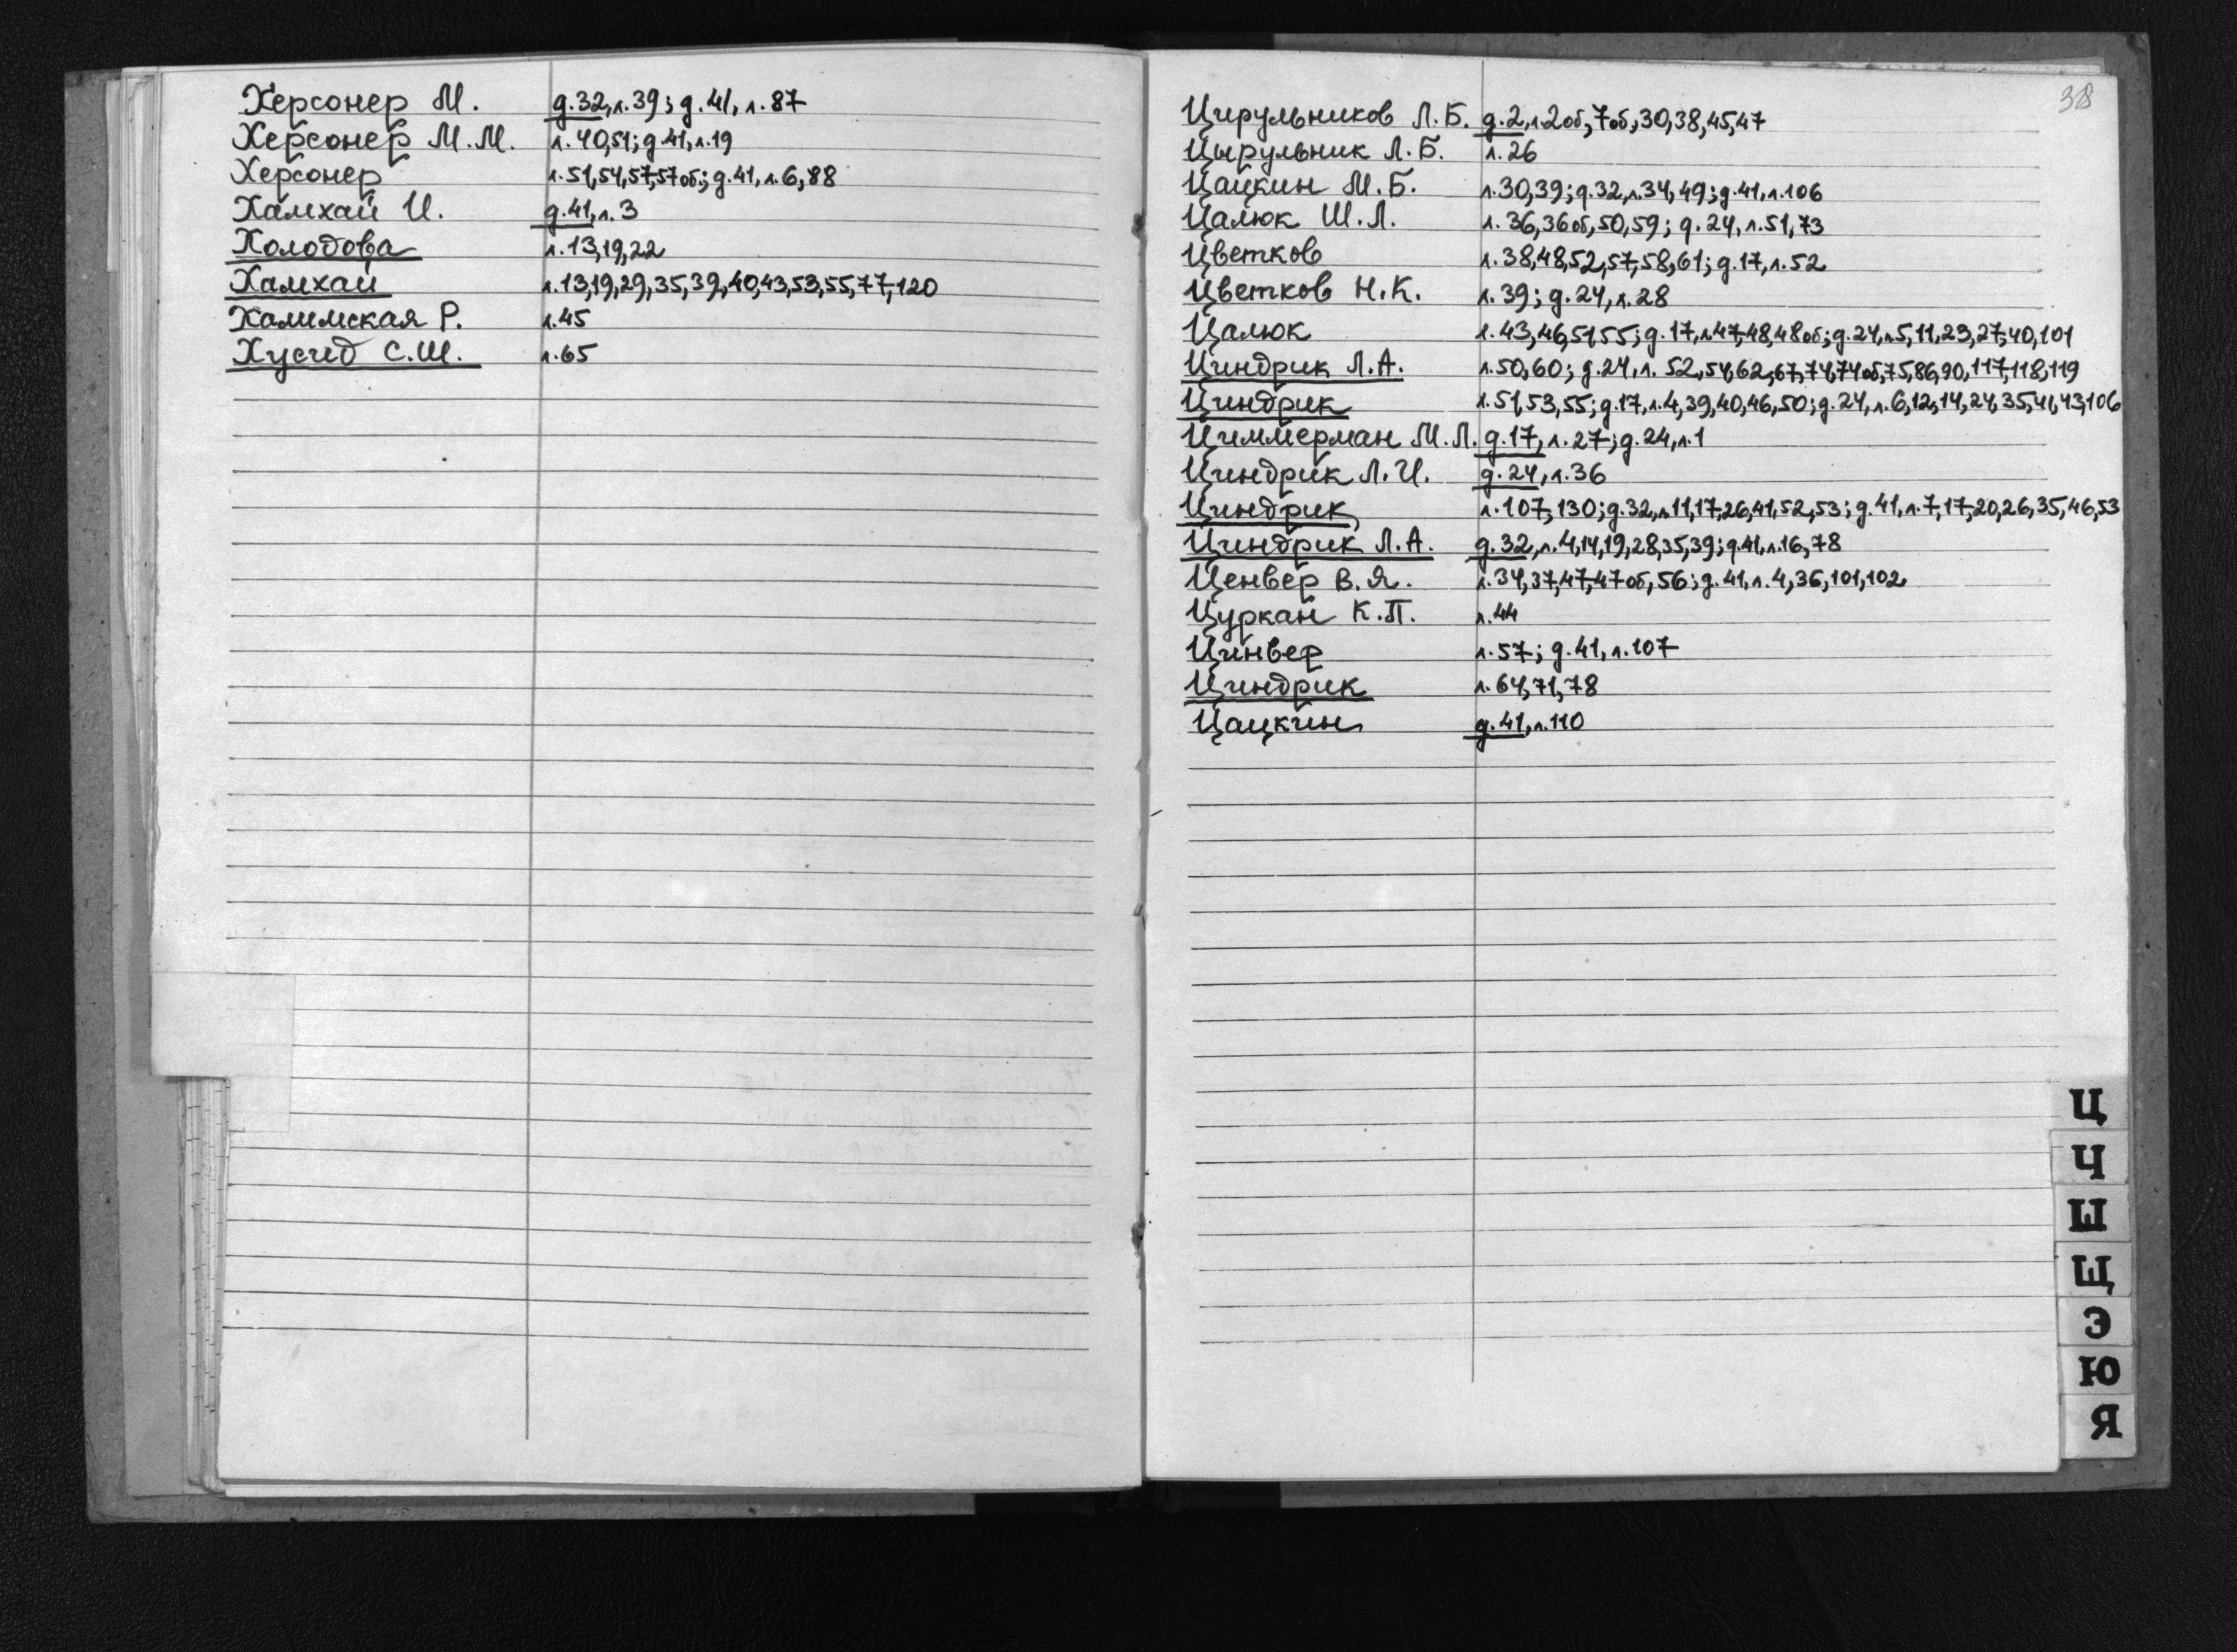 Херсонер М. д.32, л.39; д.41, л.87
Херсонер М.М. л.40,51; д.41, л.19
Херсонер л.51,54,57,57об.; д.41, л.6,88
Хамхай И. д.41, л.3
Холодова л.13,19,22
Хамхай л.13,19,29,35,39,40,43,53,55,77,120
Халимская Р. л.45
Хусид С.Ш. л.65
38
Цирульников Л.Б. д.2, л.2об,7об,30,38,45,47
Цырульник Л.Б. л.26
Цацкин М.Б. л.30,39; д.32, л.34,49; д.41, л.106
Цалюк Ш.Л. л.36,36об,50,59; д.24, л.51,73
Цветков л.38,48,52,57,58,61; д.17, л.52
Цветков Н.К. л.39; д.24, л.28
Цалюк л.43,46,51,55; д.17, л.47,48,48об; д.24, л.5,11,23,27,40,101
Циндрик Л.А. л.50,60; д.24, л.52,54,62,67,74,74об,75,86,90,117,118,119
Циндрик л.51,53,55; д.17, л.4,39,40,46,50; д.24, л.6,12,14,24,35,41,43,106
Циммерман М.Л. д.17, л.27; д.24, л.1
Циндрик Л.И. д.24, л.36
Циндрик л.107,130; д.32, л.11,17,26,41,52,53; д.41, л.7,17,20,26,35,46,53
Циндрик Л.А. д.32, л.4,14,19,28,35,39; д.41, л.16,78
Ценвер В.Я. л.34,37,47,47об,56; д.41, л.4,36,101,102
Цуркан К.П. л.44
Цинвер л.57; д.41, л.107
Циндрик л.64,71,78
Цацкин д.41, л.110
Ц
Ч
Ш
Щ
Э
Ю
Я